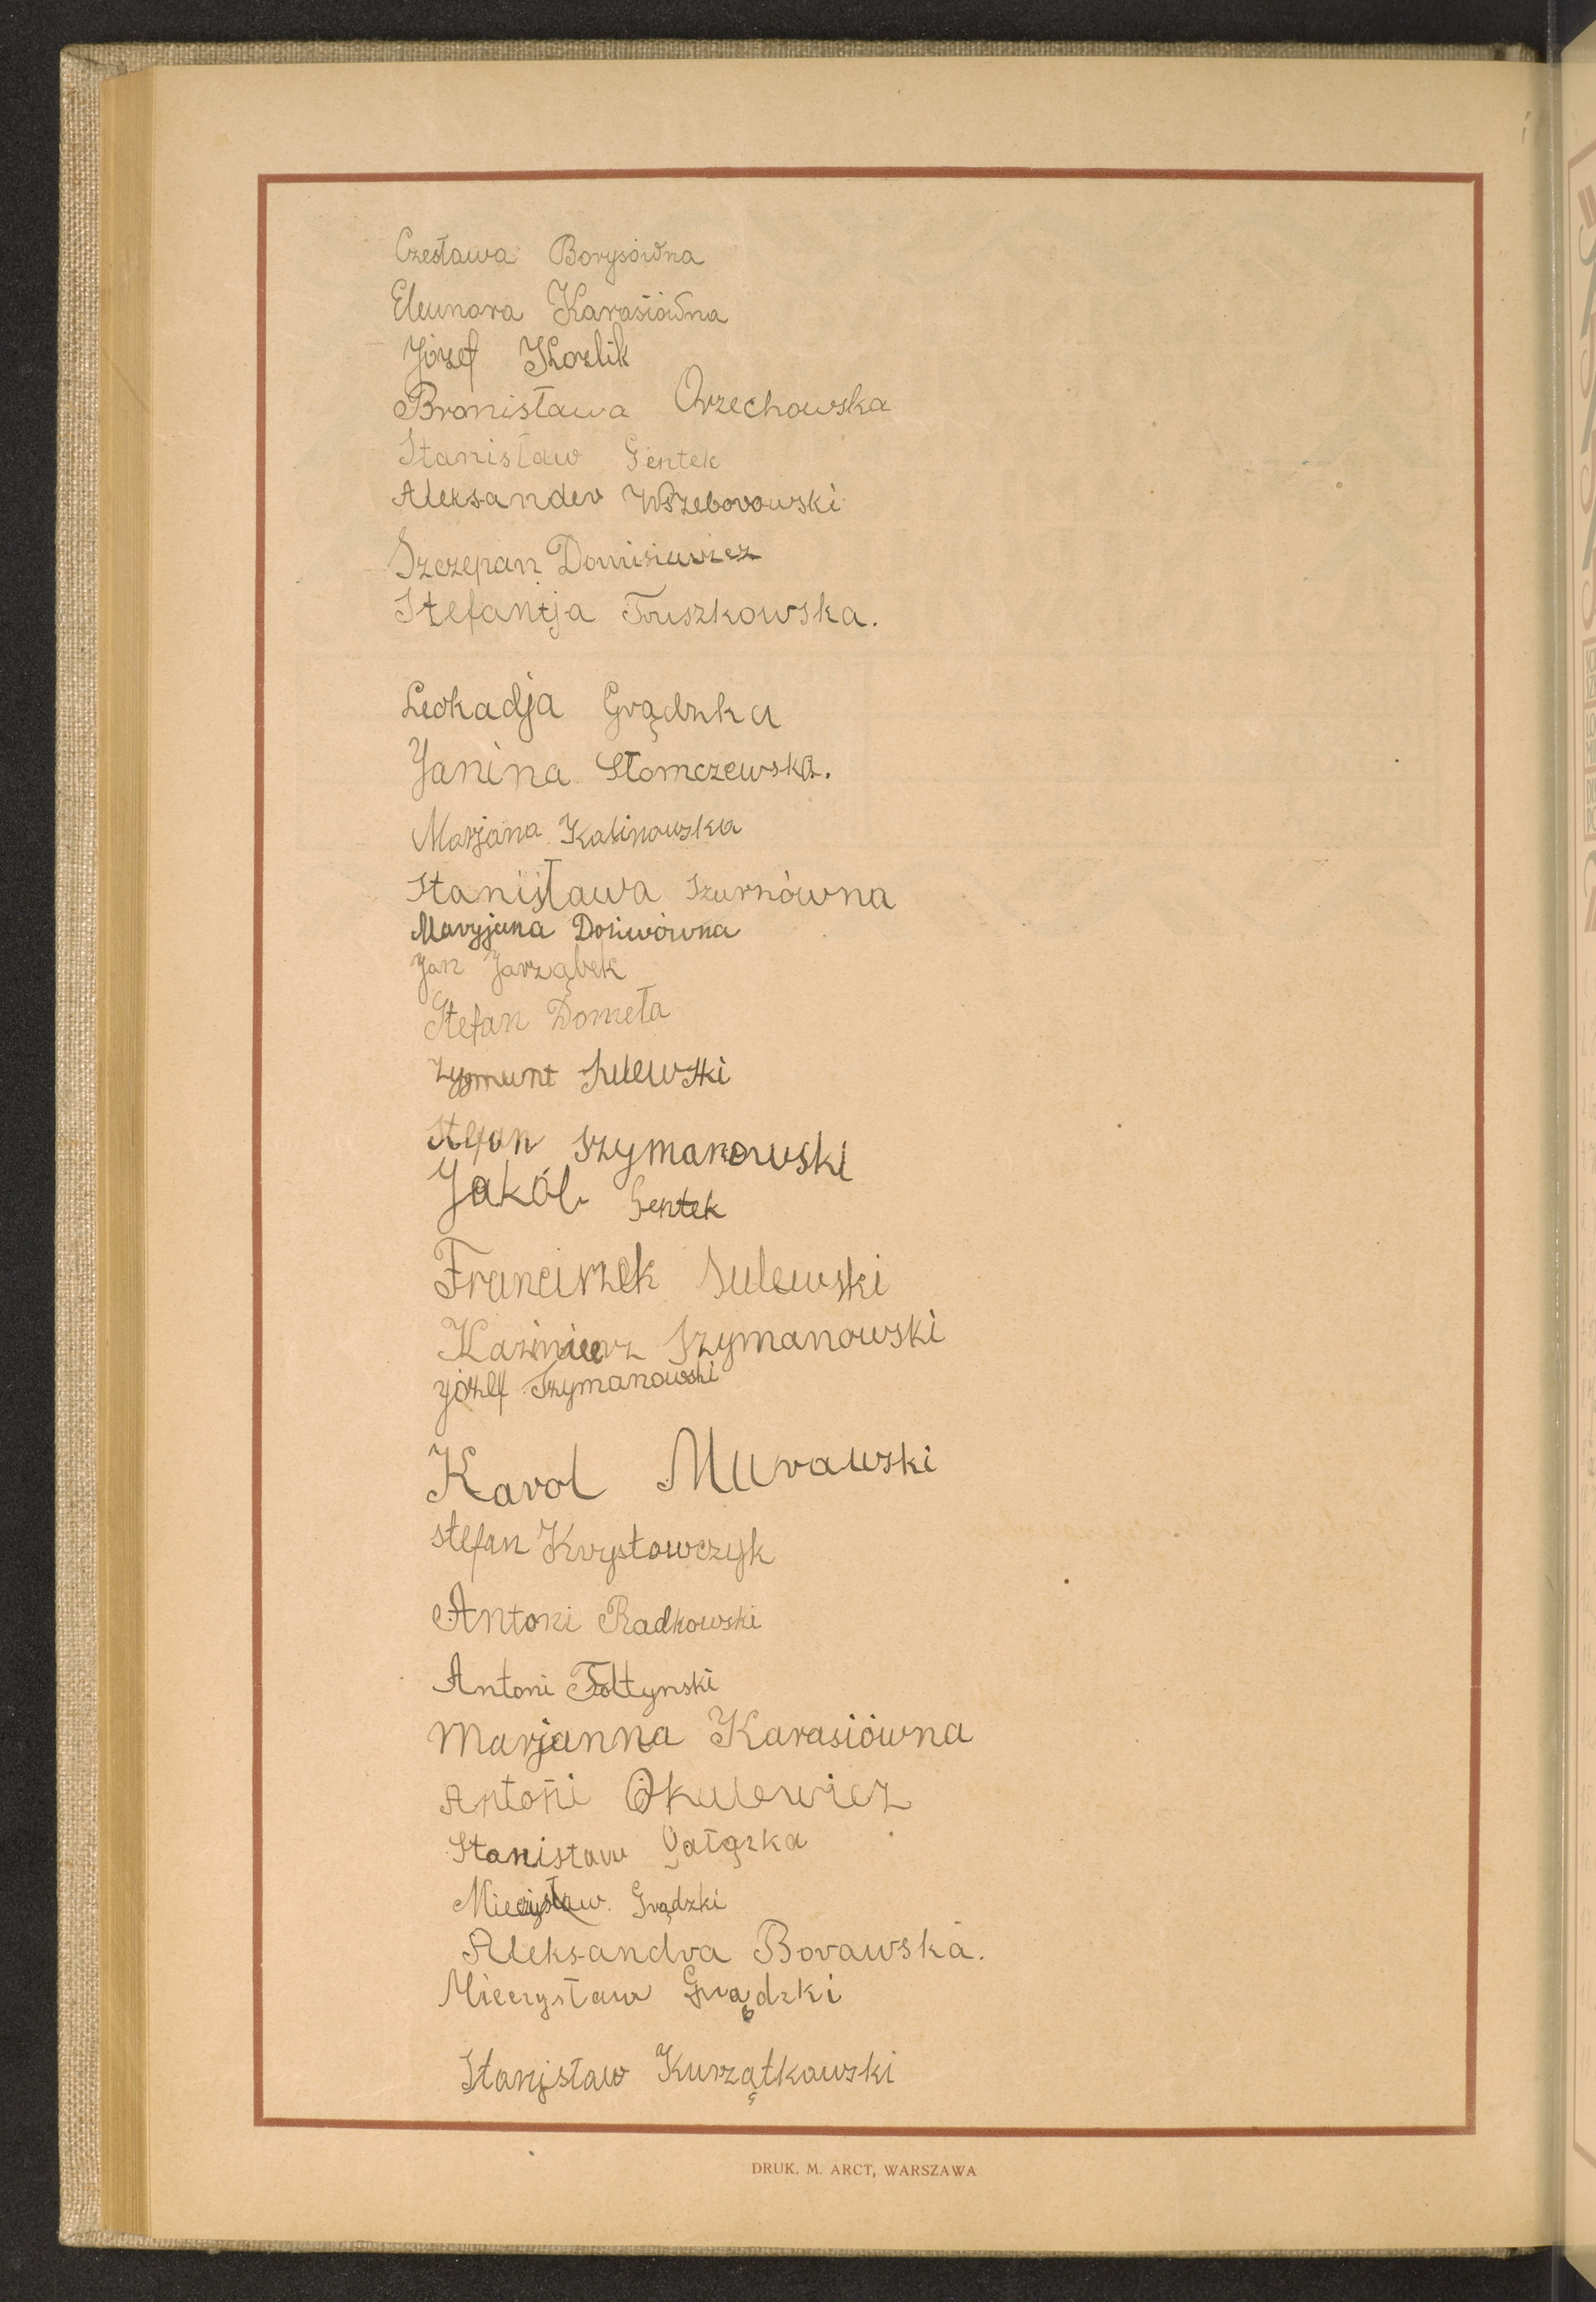 Czesława Borysówna
Eleunora Karasiówna
Józef Kozlik
Bronisława Orzechowska
Stanisław Gentek
Aleksander Wszeborowski
Szczepan Domisiewicz
Stefanija Truszkowska.
Leokadja Grądzka
Janina Słomczewska.
Marjana Kalinowska
Stanisława Szurnówna
Maryjana
Jan Jarząbek
Stefan Domeła
Zygmunt Sulewski
Stefan Szymanowski
Jakób Gentek
Franciszek Sulewski
Kazimierz Szymanowski
józef Szymanowski
Karol Murawski
Stefan Krystowczyk
Antoni Radkowski
Antoni Żołtynski
Marjanna Karasiówna
Antoni Okulewicz
Stanisław Gałązka
Mieczysław. Grądzki
Aleksandra Borawska.
Mieczysław Grądzki
Stanisław Kurzątkowski
DRUK. M. ARCT, WARSZAWA